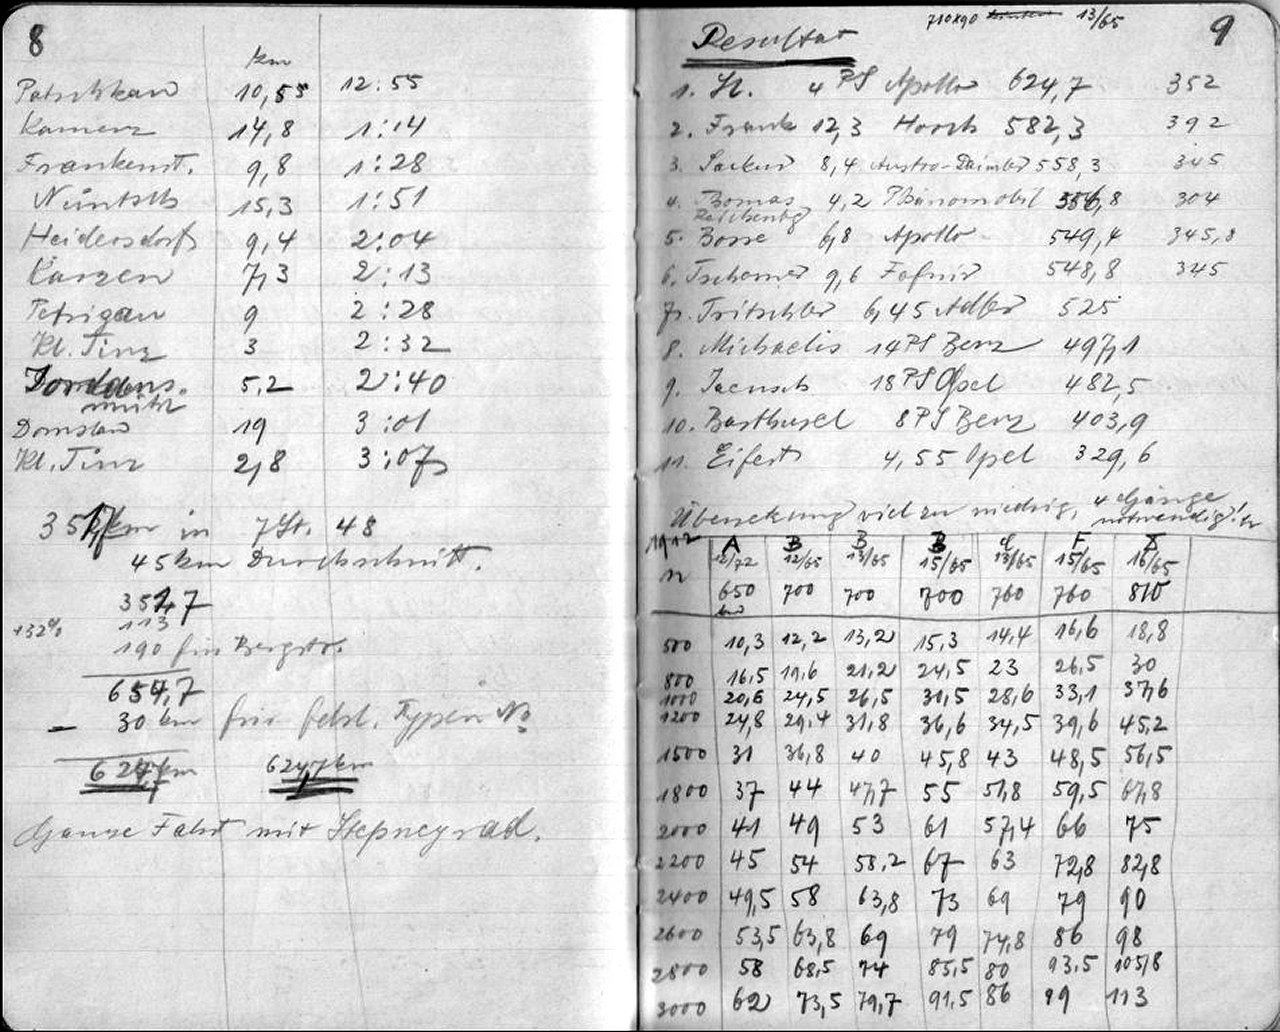 8
km
Patschkau 10,55 12:55
Kamenz 14,8 1:14
Frankenst. 9,8 1:28
Nimptsch 15,3 1:51
Heidersdorf 9,4 2:04
Karzen 7,3 2:13
Petrigau 9 2:28
Kl. Tinz 3 2:32
5,2 2:40
Domslau 19 3:01
Kl. Tinz 2,8 3:07
km in 7 St. 48
45 km Durchschnitt.
+32% 113
190 für Bergstr.
654,7
– 30 km für fehl. Typen No
624,7 km 624,7 km
Ganze Fahrt mit Stepneyrad.
710x90 13/65 9
Resultat
1. St. 4 PS Apollo 624,7 352
2. Frank 12,3 Horch 582,3 392
3. 8,4 Austro-Daimler 558,3 345
4. Bomas 4,2 Phänomobil 304
5. Bosse 6,8 Apollo 549,4 345,8
6. Tschomer 9,6 Fafnir 548,8 345
7. Fritschler 6,45 Adler 525
8. Michaelis 14 PS Benz 497,1
9. Jaensch 18 PS Opel 482,5
10. Barthusel 8 PS Benz 403,9
11. Eifert 4,55 Opel 329,6
Übersetzung viel zu niedrig, 4 Gänge
notwendig!
1912 A B B B C F
n 12/72 12/65 13/65 15/65 13/65 15/65 16/65
650 700 700 700 760 760 810
500 10,3 12,2 13,2 15,3 14,4 16,6 18,8
800 16,5 19,6 21,2 24,5 23 26,5 30
1000 20,6 24,5 26,5 30,5 28,6 33,1 37,6
1200 24,8 29,4 31,8 36,6 34,5 39,6 45,2
1500 31 36,8 40 45,8 43 48,5 56,5
1800 37 44 47,7 55 51,8 59,5 67,8
2000 41 49 53 61 57,4 66 75
2200 45 54 58,2 67 63 72,8 82,8
2400 49,5 58 63,8 73 69 79 90
2600 53,5 63,8 69 79 74,8 86 98
2800 58 68,5 74 85,5 80 93,5 105,8
3000 62 73,5 79,7 91,5 86 99 113